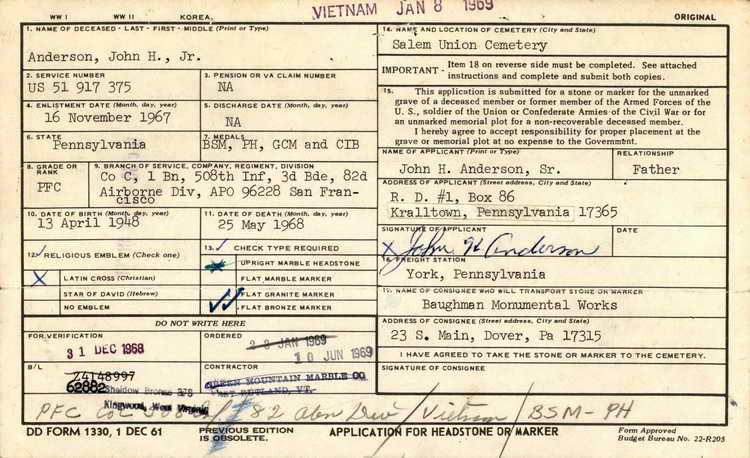 VIETNAM JAN 8 1969
WW I WW II KOREA. ORIGINAL
1. NAME OF DECEASED - LAST - FIRST - MIDDLE (Print or Type)
Anderson, John H., Jr.
2. SERVICE NUMBER
US 51 917 375
3. PENSION OR VA CLAIM NUMBER
NA
4. ENLISTMENT DATE (Month, day, year)
16 November 1967
5. DISCHARGE DATE (Month, day, year)
NA
6. STATE
Pennsylvania
7. MEDALS
BSM, PH, GCM and CIB
8. GRADE OR RANK
PFC
9. BRANCH OF SERVICE, COMPANY, REGIMENT, DIVISION
Co C, 1 Bn, 508th Inf, 3d Bde, 82d
Airborne Div, APO 96228 San Fran-
cisco
10. DATE OF BIRTH (Month, day, year)
13 April 1948
11. DATE OF DEATH (Month, day, year)
25 May 1968
12. RELIGIOUS EMBLEM (Check one)
X LATIN CROSS (Christian)
STAR OF DAVID (Hebrew)
NO EMBLEM
13. CHECK TYPE REQUIRED
UPRIGHT MARBLE HEADSTONE
FLAT MARBLE MARKER
FLAT GRANITE MARKER
FLAT BRONZE MARKER
DO NOT WRITE HERE
FOR VERIFICATION
31 DEC 1968
ORDERED
28 JAN 1969
10 JUN 1969
B/L
Z4148997
62882
Shadow Bronze
Kingwood, West Virginia
CONTRACTOR
GREEN MOUNTAIN MARBLE CO
WEST RUTLAND, VT.
14. NAME AND LOCATION OF CEMETERY (City and State)
Salem Union Cemetery
IMPORTANT - Item 18 on reverse side must be completed. See attached
instructions and complete and submit both copies.
15. This application is submitted for a stone or marker for the unmarked
grave of a deceased member or former member of the Armed Forces of the
U. S., soldier of the Union or Confederate Armies of the Civil War or for
an unmarked memorial plot for a non-recoverable deceased member.
I hereby agree to accept responsibility for proper placement at the
grave or memorial plot at no expense to the Government.
NAME OF APPLICANT (Print or Type)
John H. Anderson, Sr.
RELATIONSHIP
Father
ADDRESS OF APPLICANT (Street address, City and State)
R. D. #1, Box 86
Kralltown, Pennsylvania 17365
SIGNATURE OF APPLICANT
X John H Anderson
DATE
16. FREIGHT STATION
York, Pennsylvania
17. NAME OF CONSIGNEE WHO WILL TRANSPORT STONE OR MARKER
Baughman Monumental Works
ADDRESS OF CONSIGNEE (Street address, City and State)
23 S. Main, Dover, Pa 17315
I HAVE AGREED TO TAKE THE STONE OR MARKER TO THE CEMETERY.
SIGNATURE OF CONSIGNEE
PFC Co C 508 Inf 82 Abn Div / Vietnam / BSM-PH
DD FORM 1330, 1 DEC 61 PREVIOUS EDITION IS OBSOLETE. APPLICATION FOR HEADSTONE OR MARKER Form Approved
Budget Bureau No. 22-R205